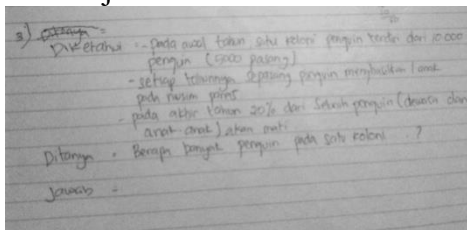 3)
Diketahui : - pada awal tahun satu koloni penguin terdiri dari 10.000
penguin (5000 pasang)
- setiap tahunnya sepasang penguin menghasilkan 1 anak
pada musim
- pada akhir tahun 20% dari seluruh penguin (dewasa dan
anak-anak) akan mati
Ditanya : Berapa banyak penguin pada satu koloni . ?
Jawab :